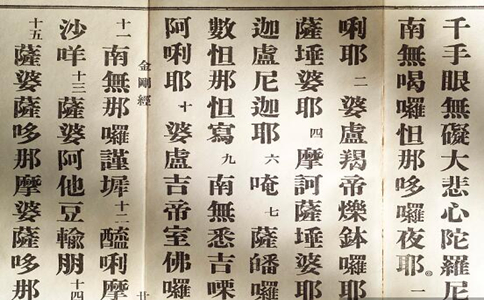 千手眼無礙大悲心陀羅尼
南無喝囉怛那哆囉夜耶 一
唎耶 二 婆盧羯帝爍鉢囉耶
薩埵婆耶 四 摩訶薩埵婆耶
迦盧尼迦耶 六 唵 七 薩皤囉
數怛那怛寫 九 南無悉吉嘌
阿唎耶 十 婆盧吉帝室佛囉
金剛經
十一 南無那囉謹墀 十二 醯唎摩
沙咩 十三 薩婆阿他豆輸朋 十四
十五 薩婆薩哆那摩婆薩哆那